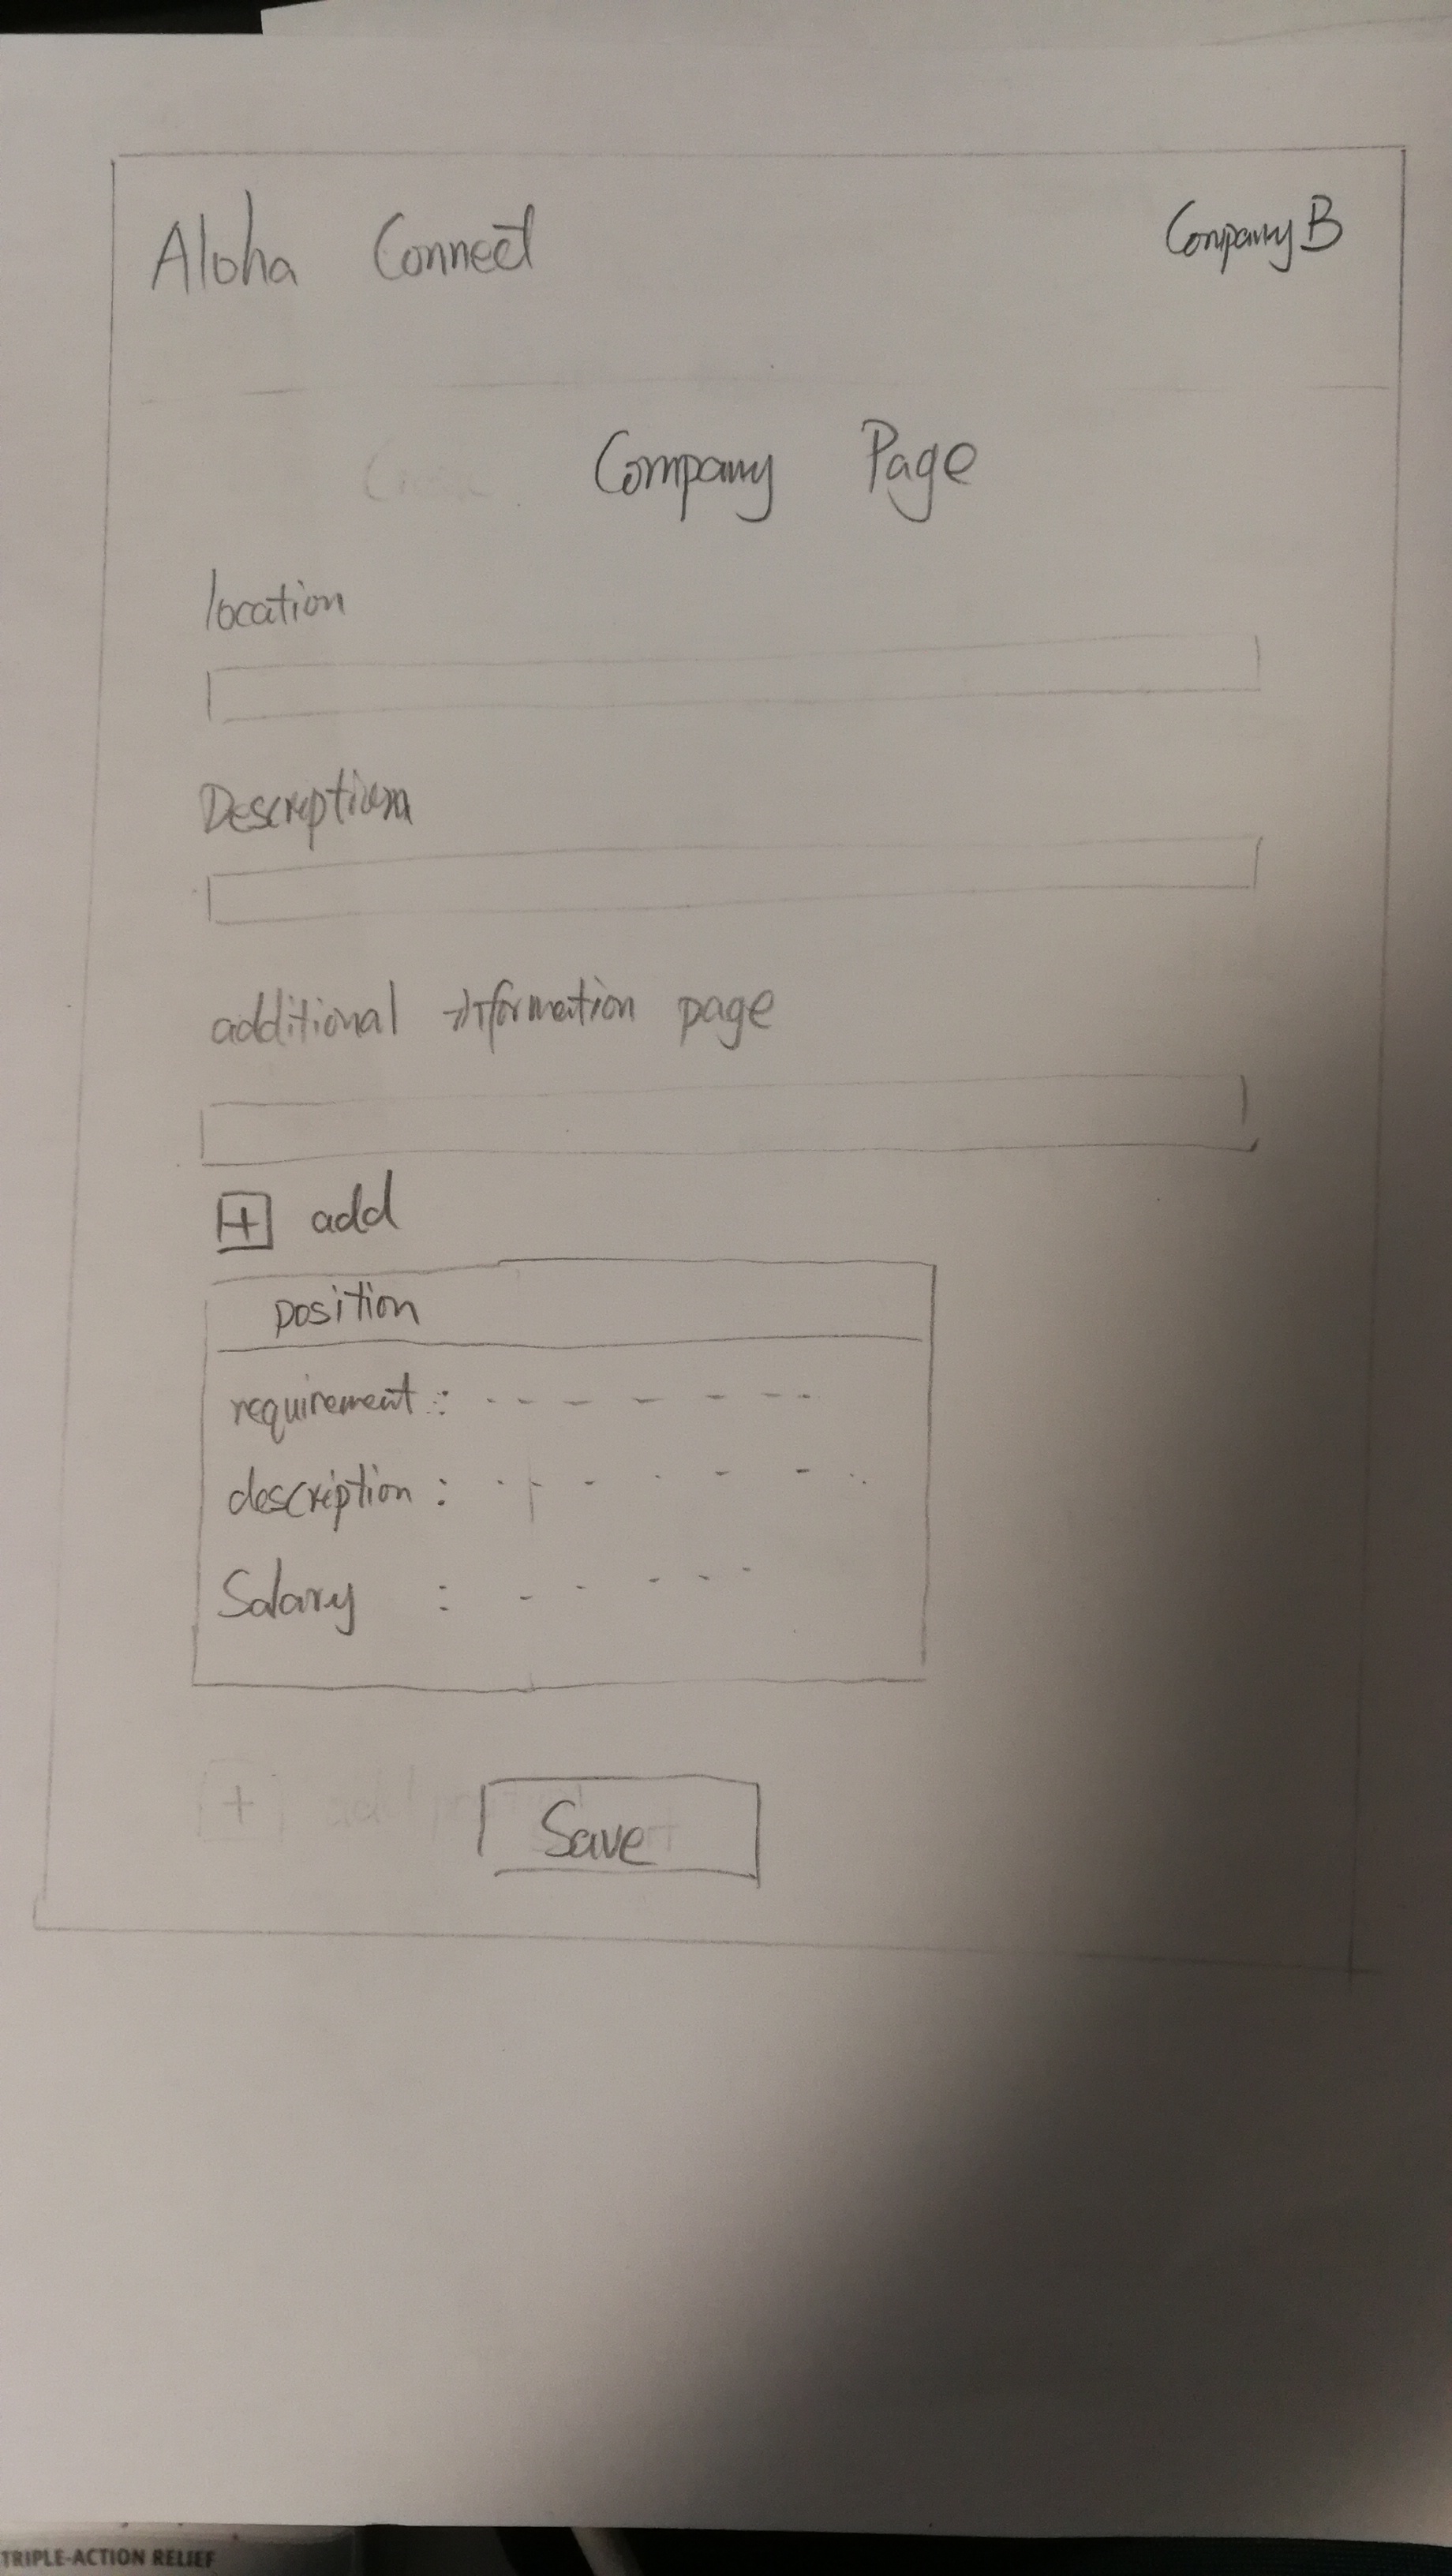 Aloha Connect
Company B
Company Page
location
Description
additional information page
+ add
position
requirement :
description :
Salary :
+ add
Save
TRIPLE-ACTION RELIEF